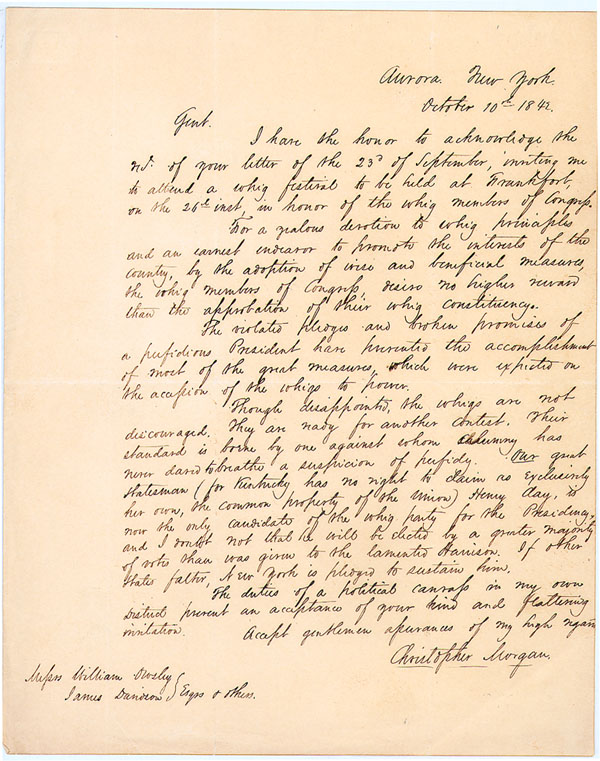 Aurora. New York.
October 10th 1842.
Gent.
I have the honor to acknowledge the
rct. of your letter of the 23d of September, inviting me
to attend a whig festival to be held at Frankfort,
on the 26th inst, in honor of the whig members of Congress.
For a zealous devotion to whig principles
and an earnest endeavor to promote the interests of the
country, by the adoption of wise and beneficial measures,
the whig members of Congress, desire no higher reward
than the approbation of their whig constituency.
The violated pledges and broken promises of
a perfidious President have prevented the accomplishment
of most of the great measures, which were expected on
the accession of the whigs to power.
Though disappointed, the whigs are not
discouraged. They are ready for another contest. Their
standard is borne by one against whom calumny has
never dared to breathe a suspicion of perfidy. Our great
Statesman (for Kentucky has no right to claim as exclusively
her own, the common property of the Union) Henry Clay, is
now the only candidate of the whig party for the Presidency,
and I doubt not that he will be elected by a greater majority
of votes than was given to the lamented Harrison. If other
States falter, New York is pledged to sustain him.
The duties of a political canvass in my own
District prevent an acceptance of your kind and flattering
invitation.
Accept gentlemen assurances of my high regard
Christopher Morgan.
Messrs William Owsley
James Davidson } Esqrs & others.